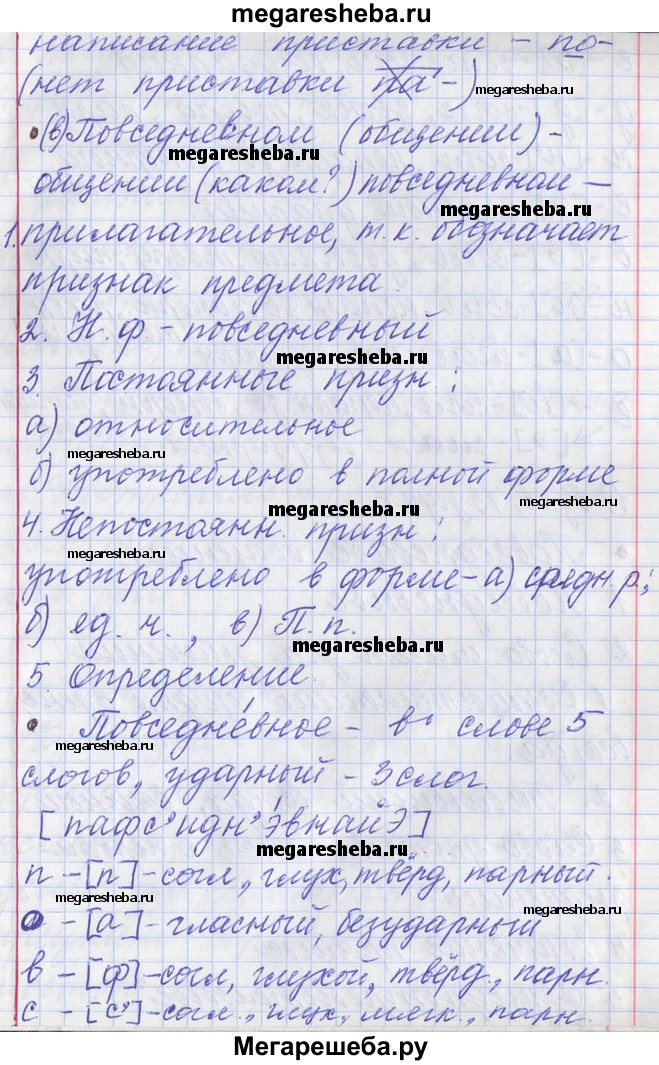 megaresheba.ru
написание приставки - по-
(нет приставки па-) megaresheba.ru
• (в) Повседневном (общении) -
megaresheba.ru
общении (каком?) повседневном —
megaresheba.ru
1. прилагательное, т.к. обозначает
признак предмета.
2. Н.ф - повседневный
megaresheba.ru
3. Постоянные призн.:
а) относительное
megaresheba.ru
б) употреблено в полной форме
megaresheba.ru megaresheba.ru
4. Непостоянн. призн:
megaresheba.ru
употреблено в форме - а) средн.р.;
б) ед. ч., в) П.п.
megaresheba.ru
5. Определение.
• Повседне́вное - в слове 5
megaresheba.ru
слогов, ударный - 3 слог.
[пафс'идн'э́внай'э]
megaresheba.ru
п - [п] - согл., глух, твёрд, парный.
megaresheba.ru
о - [а] - гласный, безударный
megaresheba.ru
в - [ф] - согл, глухой, твёрд., парн.
с - [с'] - согл., глух, мягк., парн.
megaresheba.ru
Мегарешеба.ру